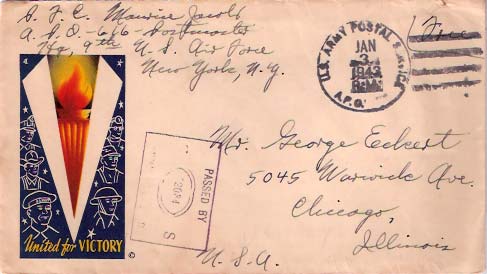 Maurice Jacobs
A.P.O.-616-Postmaster
Hq. 9th U.S. Air Force
New York, N.Y.
U.S. ARMY POSTAL SERVICE
JAN
3
1943
A.P.O.
Free
PASSED BY
Mr. George Eckert
5045 Warwick Ave.
Chicago,
Illinois
U.S.A.
United for VICTORY
©